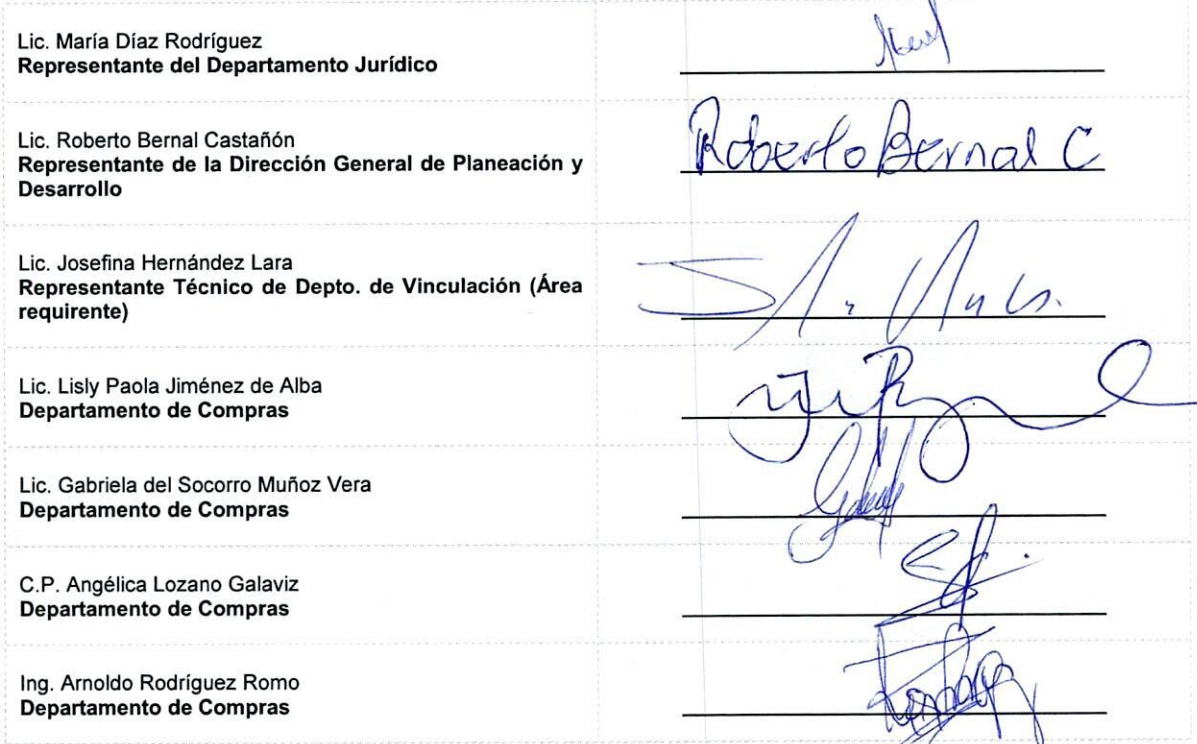 Lic. María Díaz Rodríguez
Representante del Departamento Jurídico
Lic. Roberto Bernal Castañón
Representante de la Dirección General de Planeación y
Desarrollo
Roberto Bernal C
Lic. Josefina Hernández Lara
Representante Técnico de Depto. de Vinculación (Área
requirente)
Lic. Lisly Paola Jiménez de Alba
Departamento de Compras
Lic. Gabriela del Socorro Muñoz Vera
Departamento de Compras
C.P. Angélica Lozano Galaviz
Departamento de Compras
Ing. Arnoldo Rodríguez Romo
Departamento de Compras